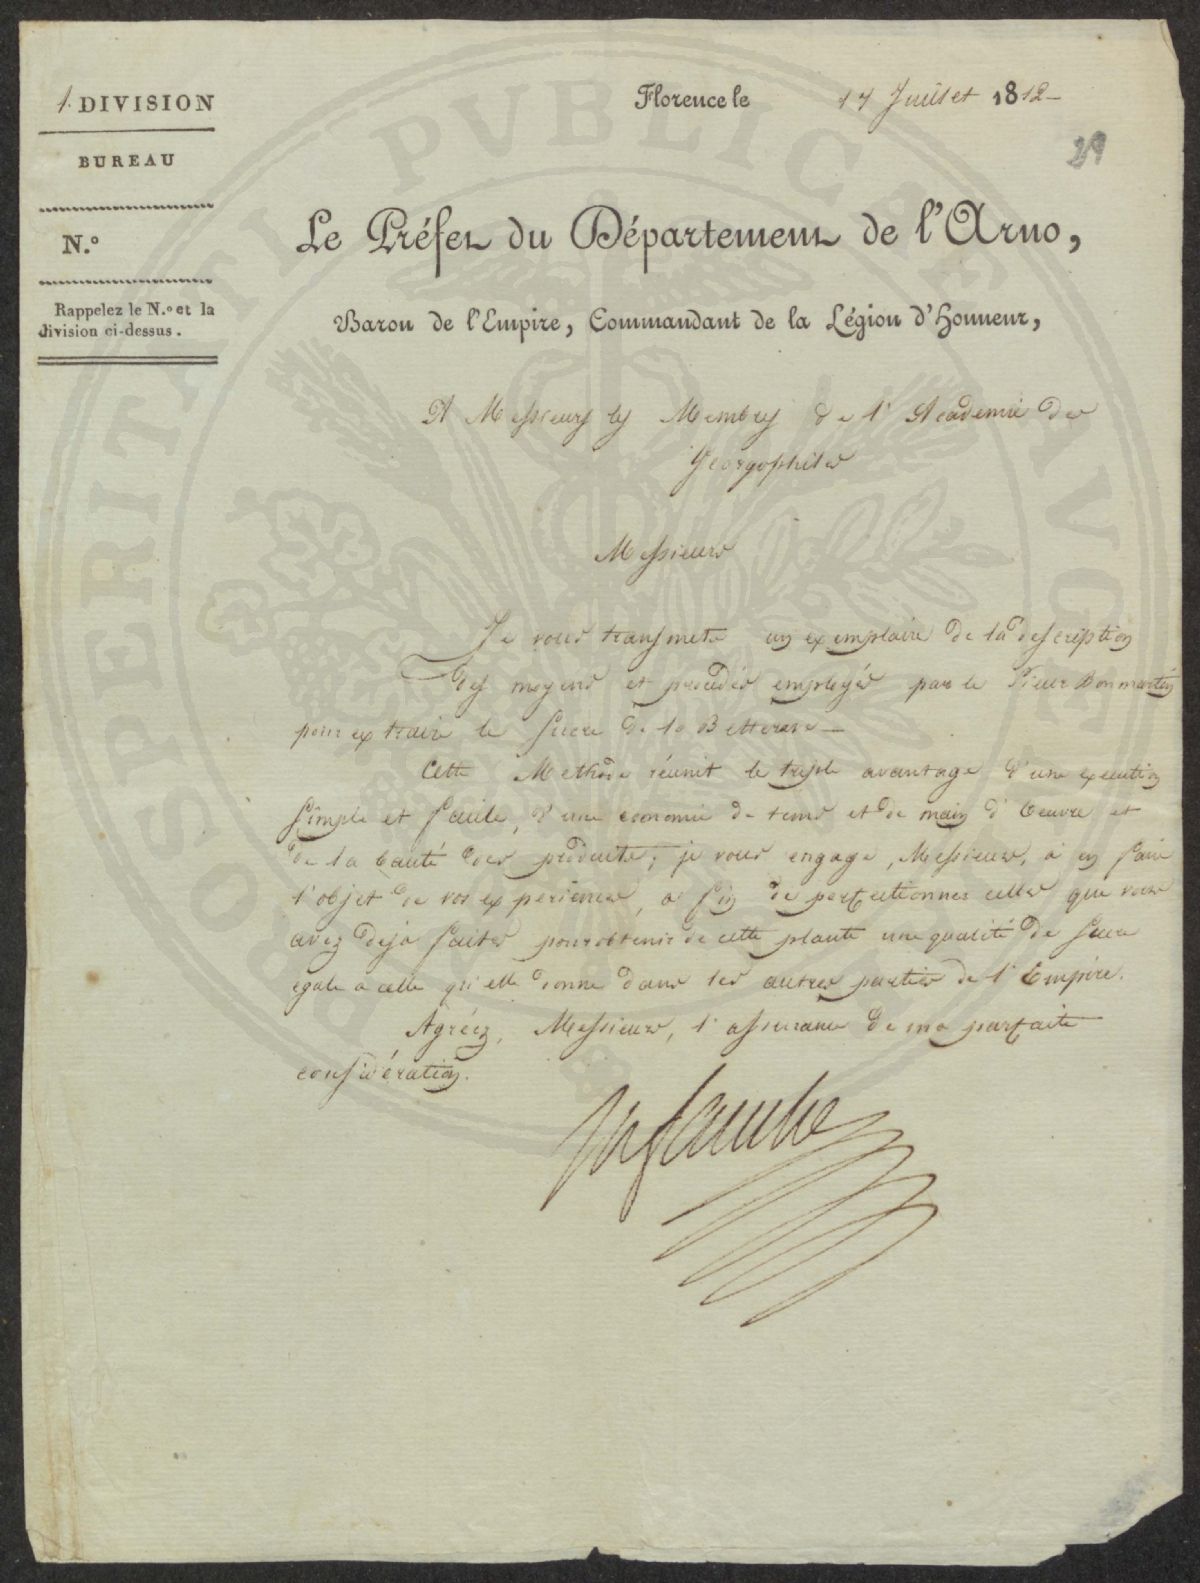 1. DIVISION
BUREAU
N.º
Rappelez le N.º et la
division ci-dessus.
Florence le 17 Juillet 1812
29
Le Préfet du Département de l'Arno,
Baron de l'Empire, Commandant de la Légion d'Honneur,
A Messieurs les Membres de l'Academie des
Georgophiles
Messieurs
Je vous transmets un exemplaire de la description
des moyens et procédés employés par le Sieur Bonmartin
pour extraire le sucre de la Betterave
Cette Methode réunit le triple avantage d'une execution
simple et facile, d'une economie de tems et de main d'Oeuvre et
de la bauté des produits; je vous engage, Messieurs, à en faire
l'objet de vos experiences, a fin de perfectionner celles que vous
avez deja faites pour obtenir de cette plante une qualité de sucre
egale a celle qu'elle donne dans les autres parties de l'Empire.
Agréez, Messieurs, l'assurance de ma parfaite
considération.
PROSPERITATI PVBLICAE AVGENDAE